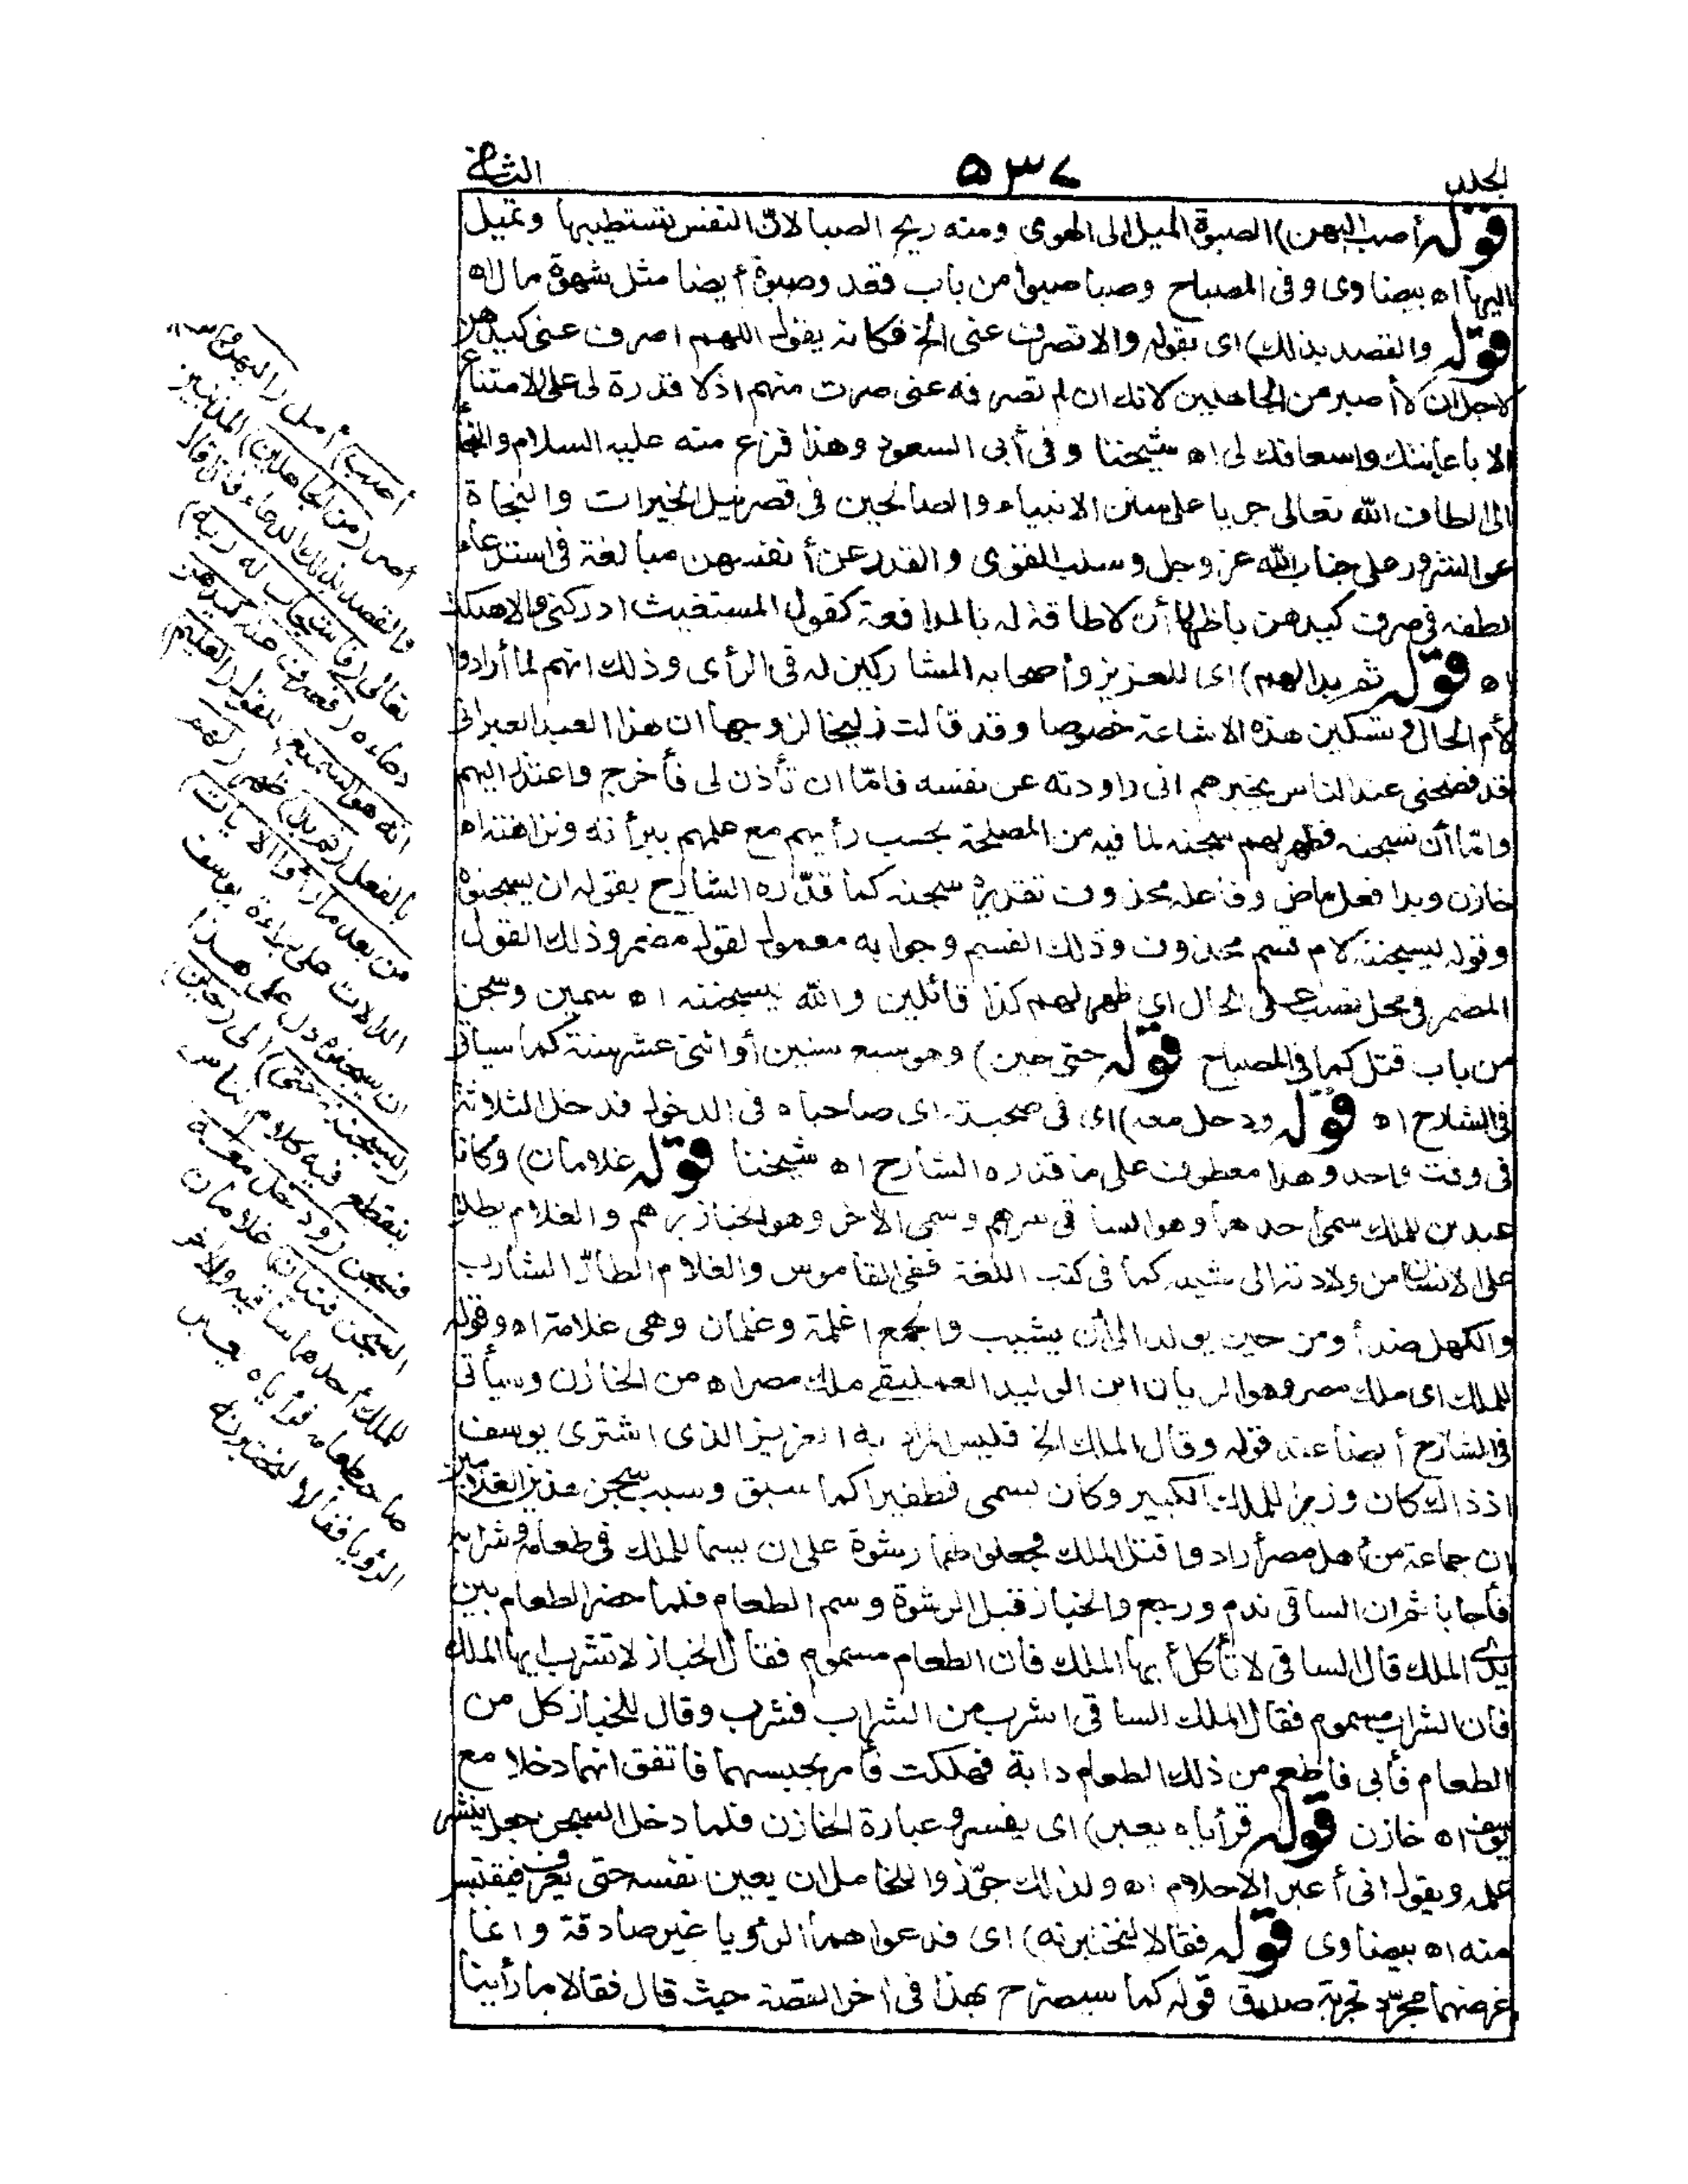 الجلد
٥٣٧
الثاني
قوله أصب اليهن) الصبوة الميل الى الهوى ومنه ريح الصبا لانّ النفس تستطيبها وتميل
اليها اه بيضاوى وفى المصباح وصبا صبوا من باب قعد وصبوة أيضا مثل شهوة مال اه
قوله والقصد بذلك) اى بقوله والا تصرف عنى الخ فكانه يقول اللهم اصرف عنى كيدهن
لاجل ان لا أصير من الجاهلين لانك ان لم تصرفه عنى صرت منهم اذ لا قدرة لى على الامتناع
الا باعانتك واسعافك لى اه شيخنا وفى أبى السعود وهذا فزع منه عليه السلام والتجأ
الى الطاف الله تعالى جريا على سنن الانبياء والصالحين فى قصر نيل الخيرات والنجاة
عن الشرور على جناب الله عز وجل وسلب القوى والقدر عن أنفسهن مبالغة فى استدعاء
لطفه فى صرف كيدهن باظهار أن لا طاقة له بالمدافعة كقول المستغيث ادركنى والا هلكت
اه قوله ثم بدا لهم) اى للعزيز وأصحابه المشاركين له فى الرأى وذلك انهم لما أرادوا
لأم الحال وتسكين هذه الاشاعة خصوصا وقد قالت زليخا لزوجها ان هذا العبد العبرانى
قد فضحنى عند الناس يخبرهم انى راودته عن نفسه فامّا ان تأذن لى فأخرج واعتذر اليهم
وامّا أن تسجنه فظهر لهم سجنه لما فيه من المصلحة بحسب رأيهم مع علمهم ببرأته ونزاهته اه
خازن وبدا فعل ماض وفاعله محذوف تقديره سجنه كما قدّره الشارح بقوله ان يسجنوه
وقوله ليسجننه لام قسم محذوف وذلك القسم وجوابه معمول لقول مضمر وذلك القول
المضمر فى محل نصب على الحال اى ظهر لهم كذا قائلين والله ليسجننه اه سمين وسجن
من باب قتل كما فى المصباح قوله حتى حين) وهو سبع سنين أو اثنتى عشر سنة كما سيأتى
فى الشارح اه قوله ودخل معه) اى فى صحبته اى صاحباه فى الدخول فدخل الثلاثة
فى وقت واحد وهذا معطوف على ما قدره الشارح اه شيخنا قوله غلامان) وكانا
عبدين للملك سمى أحدهما وهو الساقى سرهم وسمى الآخر وهو الخباز برهم والغلام يطلق
على الانسان من ولادته الى شيبه كما فى كتب اللغة ففى القاموس والغلام الطارّ الشارب
والكهل ضد أو من حين يولد الى أن يشيب والجمع اغلمة وغلمان وهى غلامة اه وقوله
للملك اى ملك مصر وهو الريان ابن الوليد العمليقى ملك مصر اه من الخازن وسيأتى
فى الشارح أيضا عند قوله وقال الملك الخ فليس المراد به العزيز الذى اشترى يوسف
اذ ذاك كان وزيرا للملك الكبير وكان يسمى قطفيرا كما سبق وسبب سجن هذين الغلامين
ان جماعة من أهل مصر أرادوا قتل الملك فجعلوا لهما رشوة على ان يسما للملك فى طعامه وشرابه
فأجابا ثم ان الساقى ندم ورجع والخباز قبل الرشوة وسم الطعام فلما حضر الطعام بين
يدى الملك قال الساقى لا تأكل أيها الملك فان الطعام مسموم فقال الخباز لا تشرب ايها الملك
فان الشراب مسموم فقال الملك الساقى اشرب من الشراب فشرب وقال للخباز كل من
الطعام فأبى فاطعم من ذلك الطعام دابة فهلكت فأمر بحبسهما فاتفق انهما دخلا مع
يوسف اه خازن قوله فرأياه يعبر) اى يفسر وعبارة الخازن فلما دخل السجن جعل ينشر
علمه ويقول انى أعبر الاحلام اه ولذلك جوّزوا للخامل ان يعين نفسه حتى يعرف فيقتبس
منه اه بيضاوى قوله فقالا لنختبرنه) اى فدعواهما الرؤيا غير صادقة وانما
غرضهما مجرّد تجربة صدق قوله كما سيصرّح بهذا فى اخر القصة حيث قال فقالا ما رأينا
أصب) أمل (اليهن و
أصر (من الجاهلين) المذنبين
والقصد بذلك الدعاء فلذا قال
تعالى (فاستجاب له ربه)
دعاءه (فصرف عنه كيدهن
انه هو السميع) للقول (العليم)
بالفعل (ثم بدا) ظهر (لهم
من بعد ما رأوا الآيات)
الدالات على براءة يوسف
ان يسجنوه دل على هذا
(ليسجننه حتى) الى (حين)
ينقطع فيه كلام الناس
فسجن (ودخل معه
السجن فتيان) غلامان
للملك أحدهما ساقيه والآخر
صاحب طعامه فرأياه يعبر
الرؤيا فقالا لنختبرنه